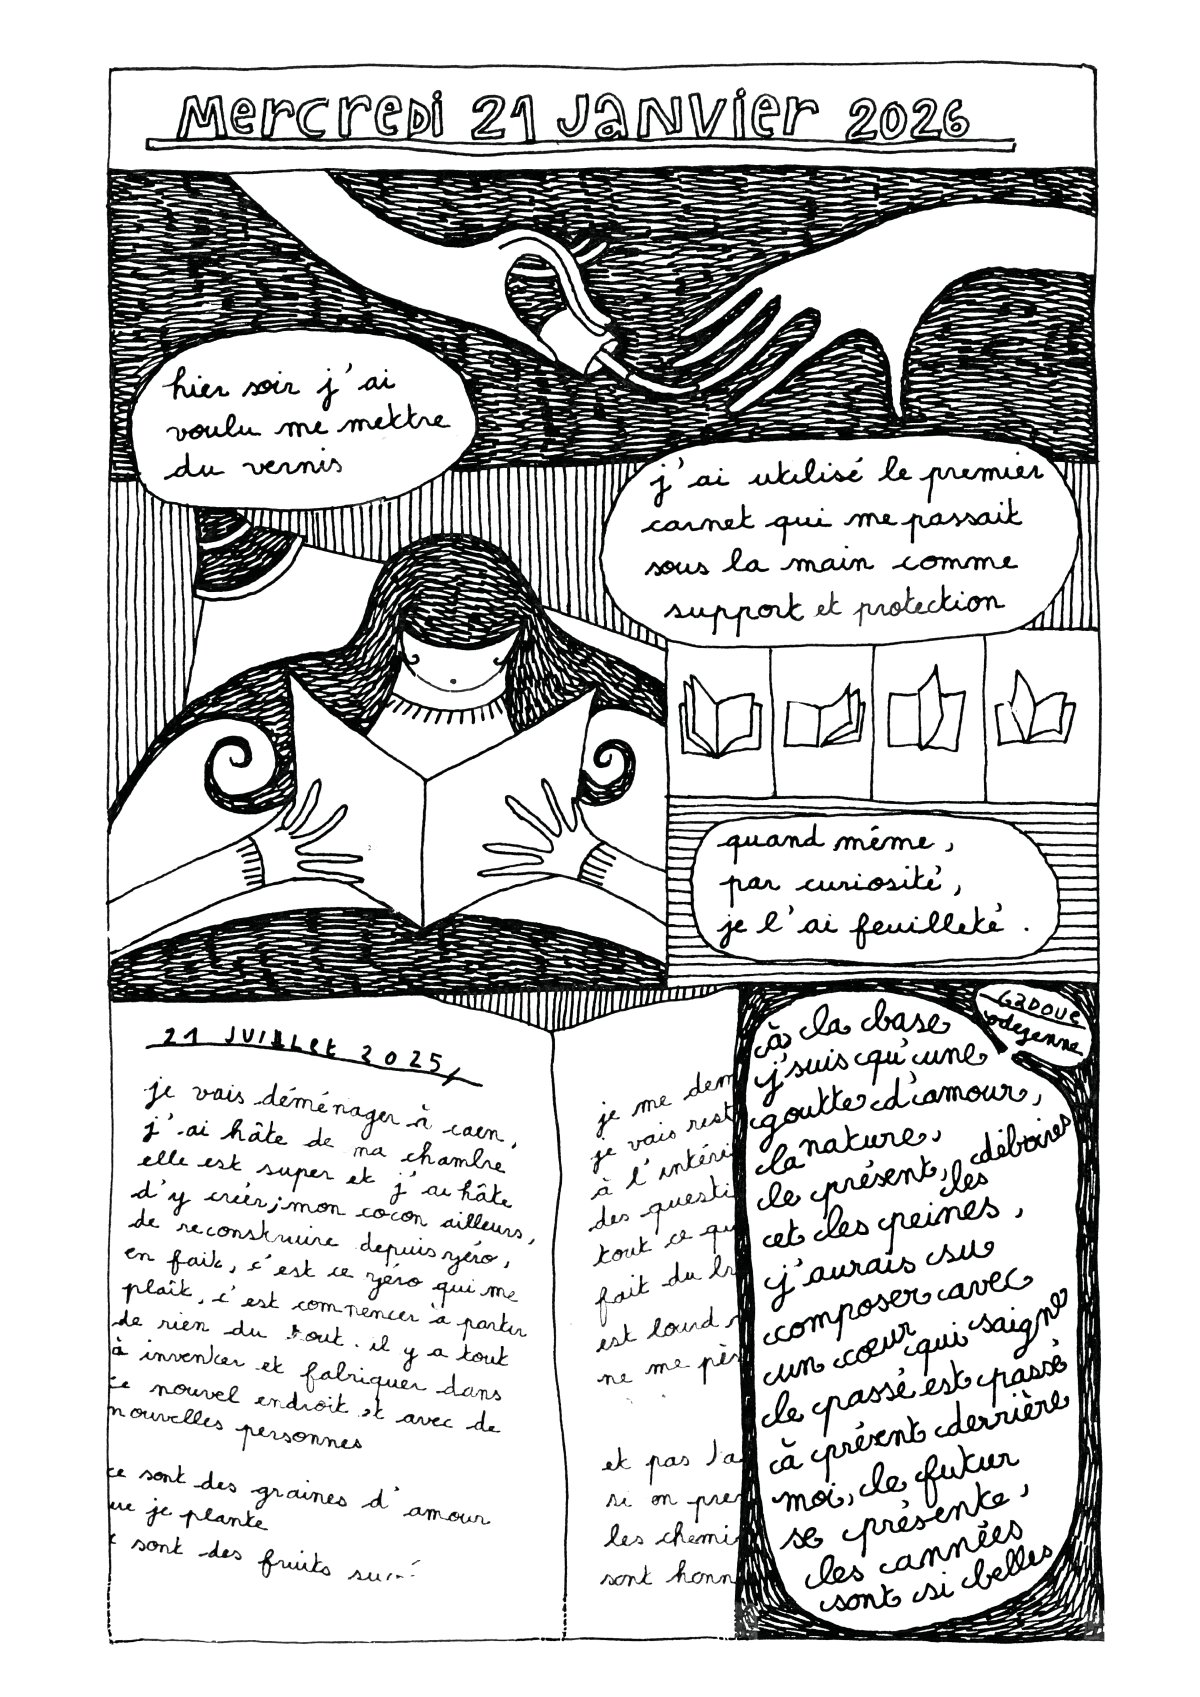 Mercredi 21 Janvier 2026
hier soir j'ai
voulu me mettre
du vernis
j'ai utilisé le premier
carnet qui me passait
sous la main comme
support et protection
quand même,
par curiosité,
je l'ai feuilleté.
21 Juillet 2025,
je vais déménager à caen,
j'ai hâte de ma chambre
elle est super et j'ai hâte
d'y créer, mon cocon ailleurs,
de reconstruire depuis zéro,
en fait, c'est ce zéro qui me
plaît, c'est commencer à partir
de rien du tout. il y a tout
à inventer et fabriquer dans
ce nouvel endroit, et avec de
nouvelles personnes
ce sont des graines d'amour
ue je plante
sont des fruits
je me dem
je vais rest
à l'intéri
des questi
tout ce qu
fait du
est lourd
ne me pès
et pas
si on pren
les chemi
sont honn
G3DOUE
odezenne
à la base
j'suis qu'une
goutte d'amour,
la nature,
le présent, les déboires
et les peines,
j'aurais su
composer avec
un cœur qui saigne
le passé est passé
à présent derrière
moi, le futur
se présente,
les années
sont si belles